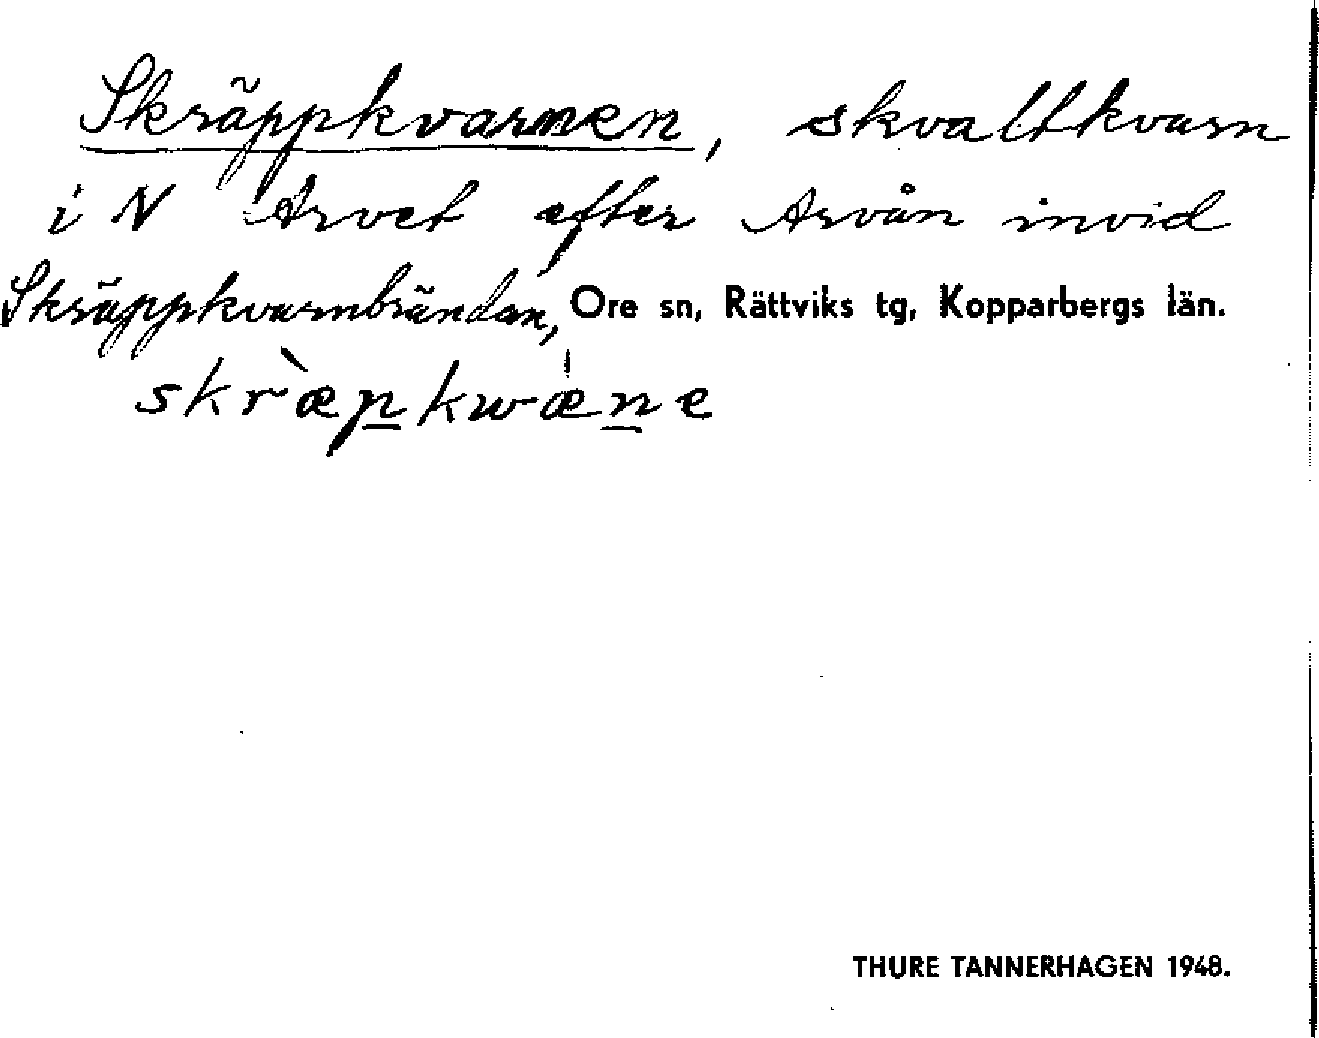 Skräppkvarnen, skvaltkvarn
i N Arvet efter Arvån invid
Skräppkvarnbrändan, Ore sn, Rättviks tg, Kopparbergs län.
skr̀æp̲kwǽn̲e
THURE TANNERHAGEN 1948.